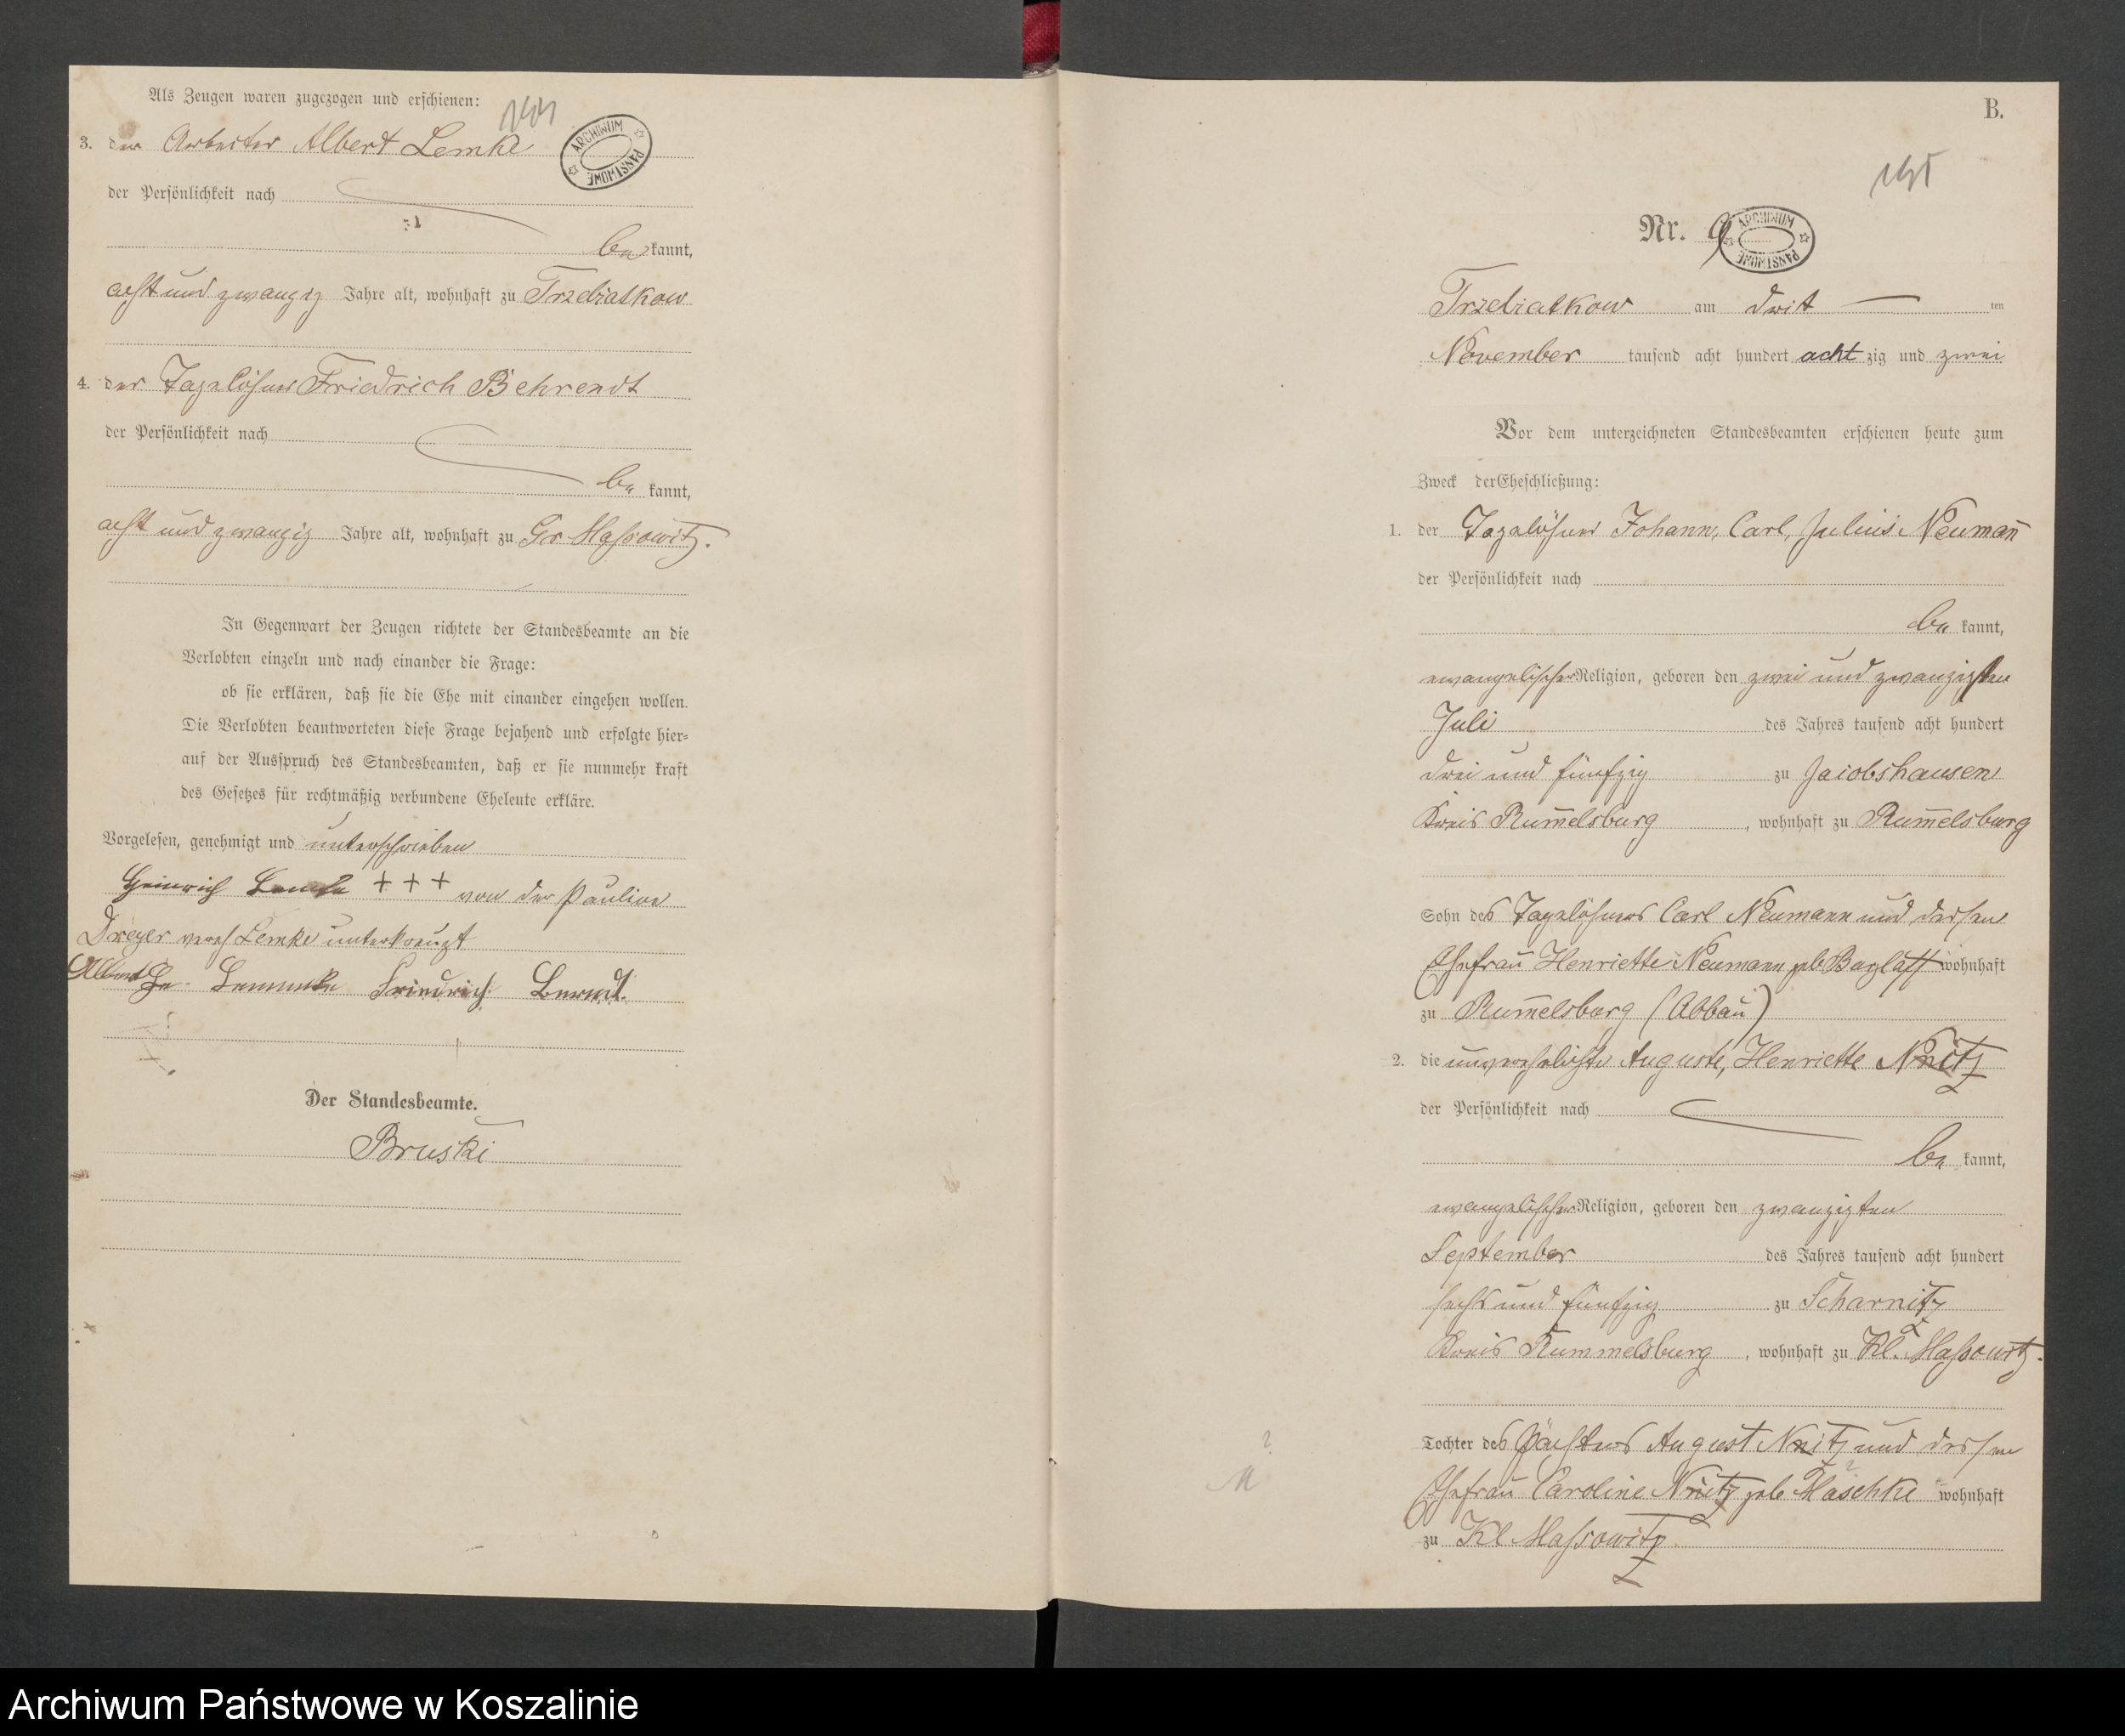 Als Zeugen waren zugezogen und erschienen:
3. der Arbeiter Albert Lemke
ARCHIWUM PAŃSTWOWE
der Persönlichkeit nach
be kannt,
acht und zwanzig Jahre alt, wohnhaft zu Trzebiatkow
4. der Tagelöhner Friedrich Behrendt
der Persönlichkeit nach
be kannt,
acht und zwanzig Jahre alt, wohnhaft zu Gr Massowitz.
In Gegenwart der Zeugen richtete der Standesbeamte an die
Verlobten einzeln und nach einander die Frage:
ob sie erklären, daß sie die Ehe mit einander eingehen wollen.
Die Verlobten beantworteten diese Frage bejahend und erfolgte hier-
auf der Ausspruch des Standesbeamten, daß er sie nunmehr kraft
des Gesetzes für rechtmäßig verbundene Eheleute erkläre.
Vorgelesen, genehmigt und unterschrieben
Heinrich Lemke +++ von der Pauline
Dreyer vereh Lemke unterkreuzt
Albert Lemmke Friedrich Berndt.
Der Standesbeamte.
Bruski
B.
Nr. 9
ARCHIWUM PAŃSTWOWE
Trzebiatkow am dritt ten
November tausend acht hundert acht zig und zwei
Vor dem unterzeichneten Standesbeamten erschienen heute zum
Zweck der Eheschließung:
1. der Tagelöhner Johann, Carl, Julius Neumann̄
der Persönlichkeit nach
be kannt,
evangelischer Religion, geboren den zwei und zwanzigsten
Juli des Jahres tausend acht hundert
drei und fünfzig zu Jacobshausen
Kreis Rum̄elsburg, wohnhaft zu Rum̄elsburg
Sohn des Tagelöhners Carl Neumann und dessen
Ehefrau Henriette Neumann geb Baglaff wohnhaft
zu Rum̄elsburg (Abbau)
2. die unverehelichte Auguste, Henriette Nnitz
der Persönlichkeit nach
be kannt,
evangelischer Religion, geboren den zwanzigsten
September des Jahres tausend acht hundert
sechs und fünfzig zu Scharnitz
Kreis Rummelsburg, wohnhaft zu Kl. Massowitz.
Tochter des Pächters August Nnitz und dessen
Ehefrau Caroline Nnitz geb Maschke wohnhaft
zu Kl Massowitz
Archiwum Państwowe w Koszalinie